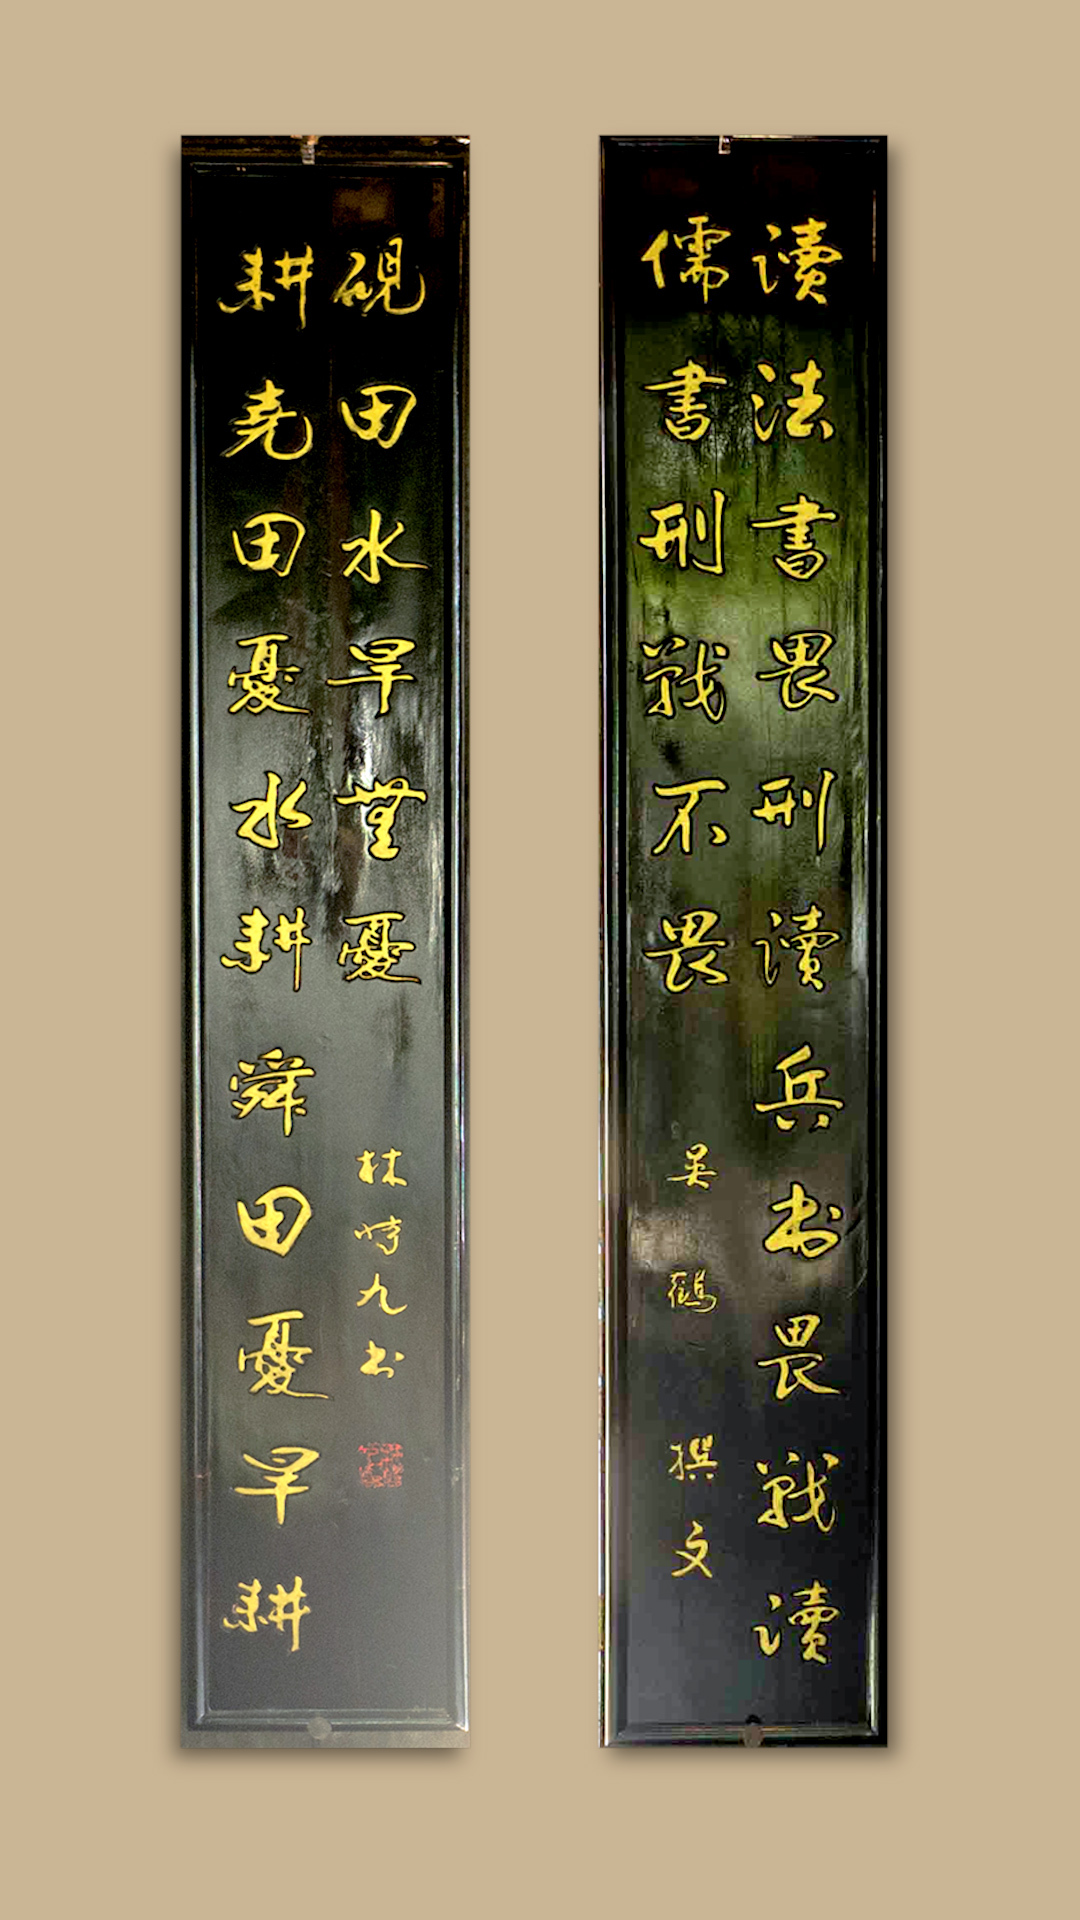 讀法書畏刑讀兵书畏戰讀
儒書刑戰不畏
吴鶴 撰文
耕尧田憂水耕舜田憂旱耕
硯田水旱無憂
林時九书